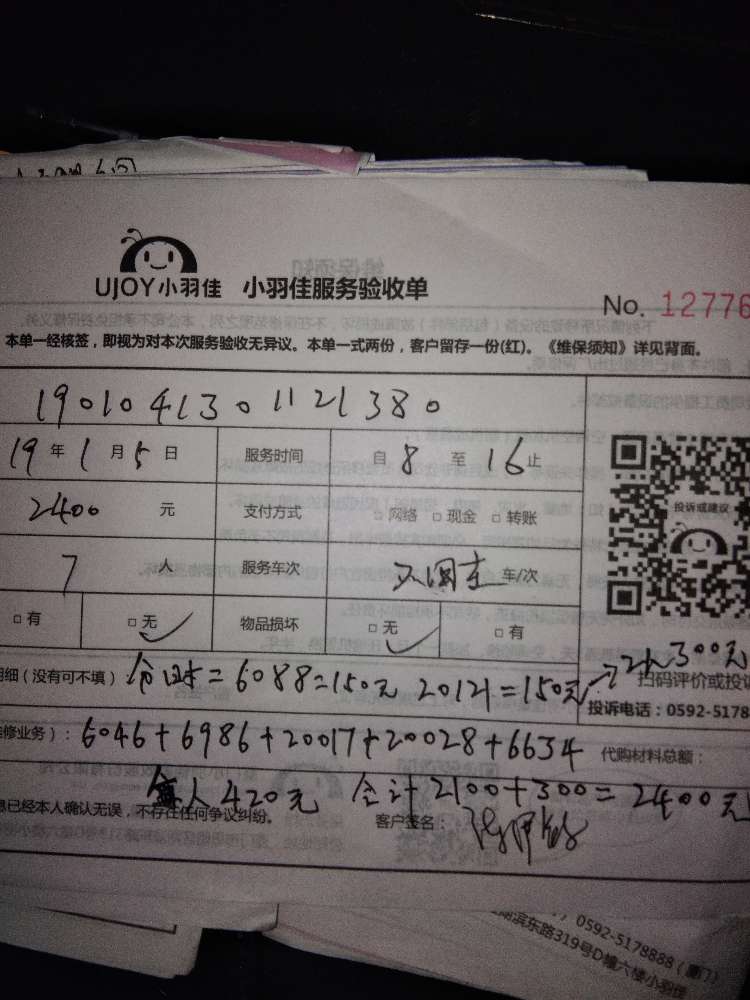 UJOY小羽佳 小羽佳服务验收单
No. 12776
本单一经核签，即视为对本次服务验收无异议。本单一式两份，客户留存一份(红)。《维保须知》详见背面。
1901041301121380
19年1月5日 服务时间 自8至16止
2400元 支付方式 □网络 □现金 □转账
投诉或建议
7人 服务车次 车/次
□有 □无 物品损坏 □无 □有
明细（没有可不填） 6088=150元 20121=150元 2人300元
扫码评价或投诉
投诉电话：0592-5178
维修业务）： 6046+6986+20017+20028+6634 代购材料总额：
每人420元 合计2100+300=2400元
息已经本人确认无误，不存在任何争议纠纷。 客户签名：
0592-5178888（厦门）
湖滨东路319号D幢六楼小羽佳